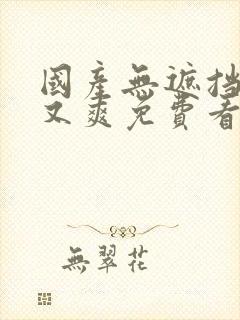 國產無遮挡
又爽免費看
無翠花